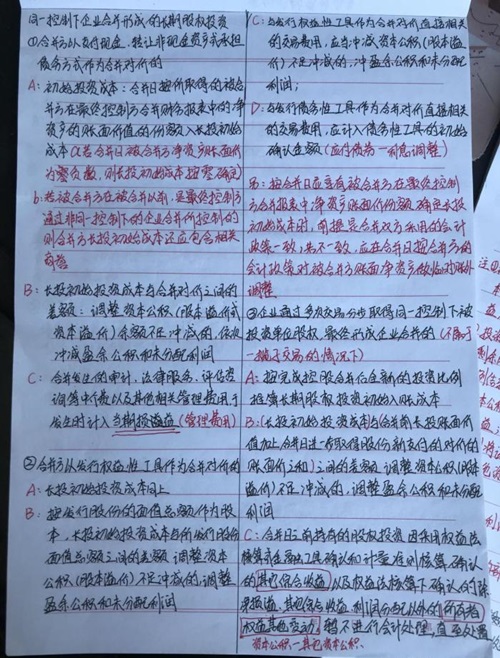 同一控制下企业合并形成的长期股权投资
①合并方以支付现金、转让非现金资产或承担
债务方式作为合并对价的
A：初始投资成本：合并日按取得的被合
并方在最终控制方合并财务报表中的净
资产的账面价值的份额入长投初始
成本（若合并日被合并方净资产账面价
为零负数，则长投初始成本按零确定）
b：若被合并方在被合并以前，是最终控制方
通过非同一控制下的企业合并所控制的
则合并方长投初始成本还应包含相关
商誉
B：长投初始投资成本与合并对价之间的
差额：调整资本公积（股本溢价或
资本溢价）余额不足冲减的，依次
冲减盈余公积和未分配利润
C：合并发生的审计、法律服务、评估咨
询等中介费以及其他相关管理费用于
发生时计入当期损益（管理费用）
②合并方以发行权益性工具作为合并对价的
A：长投初始投资成本同上
B：按发行股份的面值总额作为股
本，长投初始投资成本与所发行股份
面值总额之间的差额 调整资本
公积（股本溢价）不足冲减的，调整
盈余公积和未分配利润
C：与发行权益性工具作为合并对价直接相关
的交易费用，应当冲减资本公积（股本溢
价）不足冲减的，冲盈余公积和未分配
利润；
D：与发行债务性工具作为合并对价直接相关
的交易费用，应计入债务性工具的初始
确认金额（应付债券—利息调整）
B：按合并日应享有被合并方在最终控制方
合并报表中净资产账面价份额确定长投
初始成本时，前提是合并双方采用的会计
政策一致；若不一致，应在合并日按合并方的
会计政策对被合并方账面净资产做临时账外
调整
③企业通过多次交易分步取得同一控制下被
投资单位股权，最终形成企业合并的（不属于
一揽子交易的情况下）
A：按完成控股合并后全新的投资比例
推算长期股权投资初始入账成本
B：(长投初始投资成本)与(合并前长投账面价
值加上合并日进一步取得股份新支付的对价的
账面价之和)之间的差额，调整资本公积(股本
溢价)不足冲减的，调整盈余公积和未分配
利润
C：合并日之前持有的股权投资因采用权益法
核算或金融工具确认和计量准则核算确认
的其他综合收益以及权益法核算下确认的除
净损益、其他综合收益、利润分配以外的所有者
权益其他变动，暂不进行会计处理，直至处置
资本公积—其他资本公积.